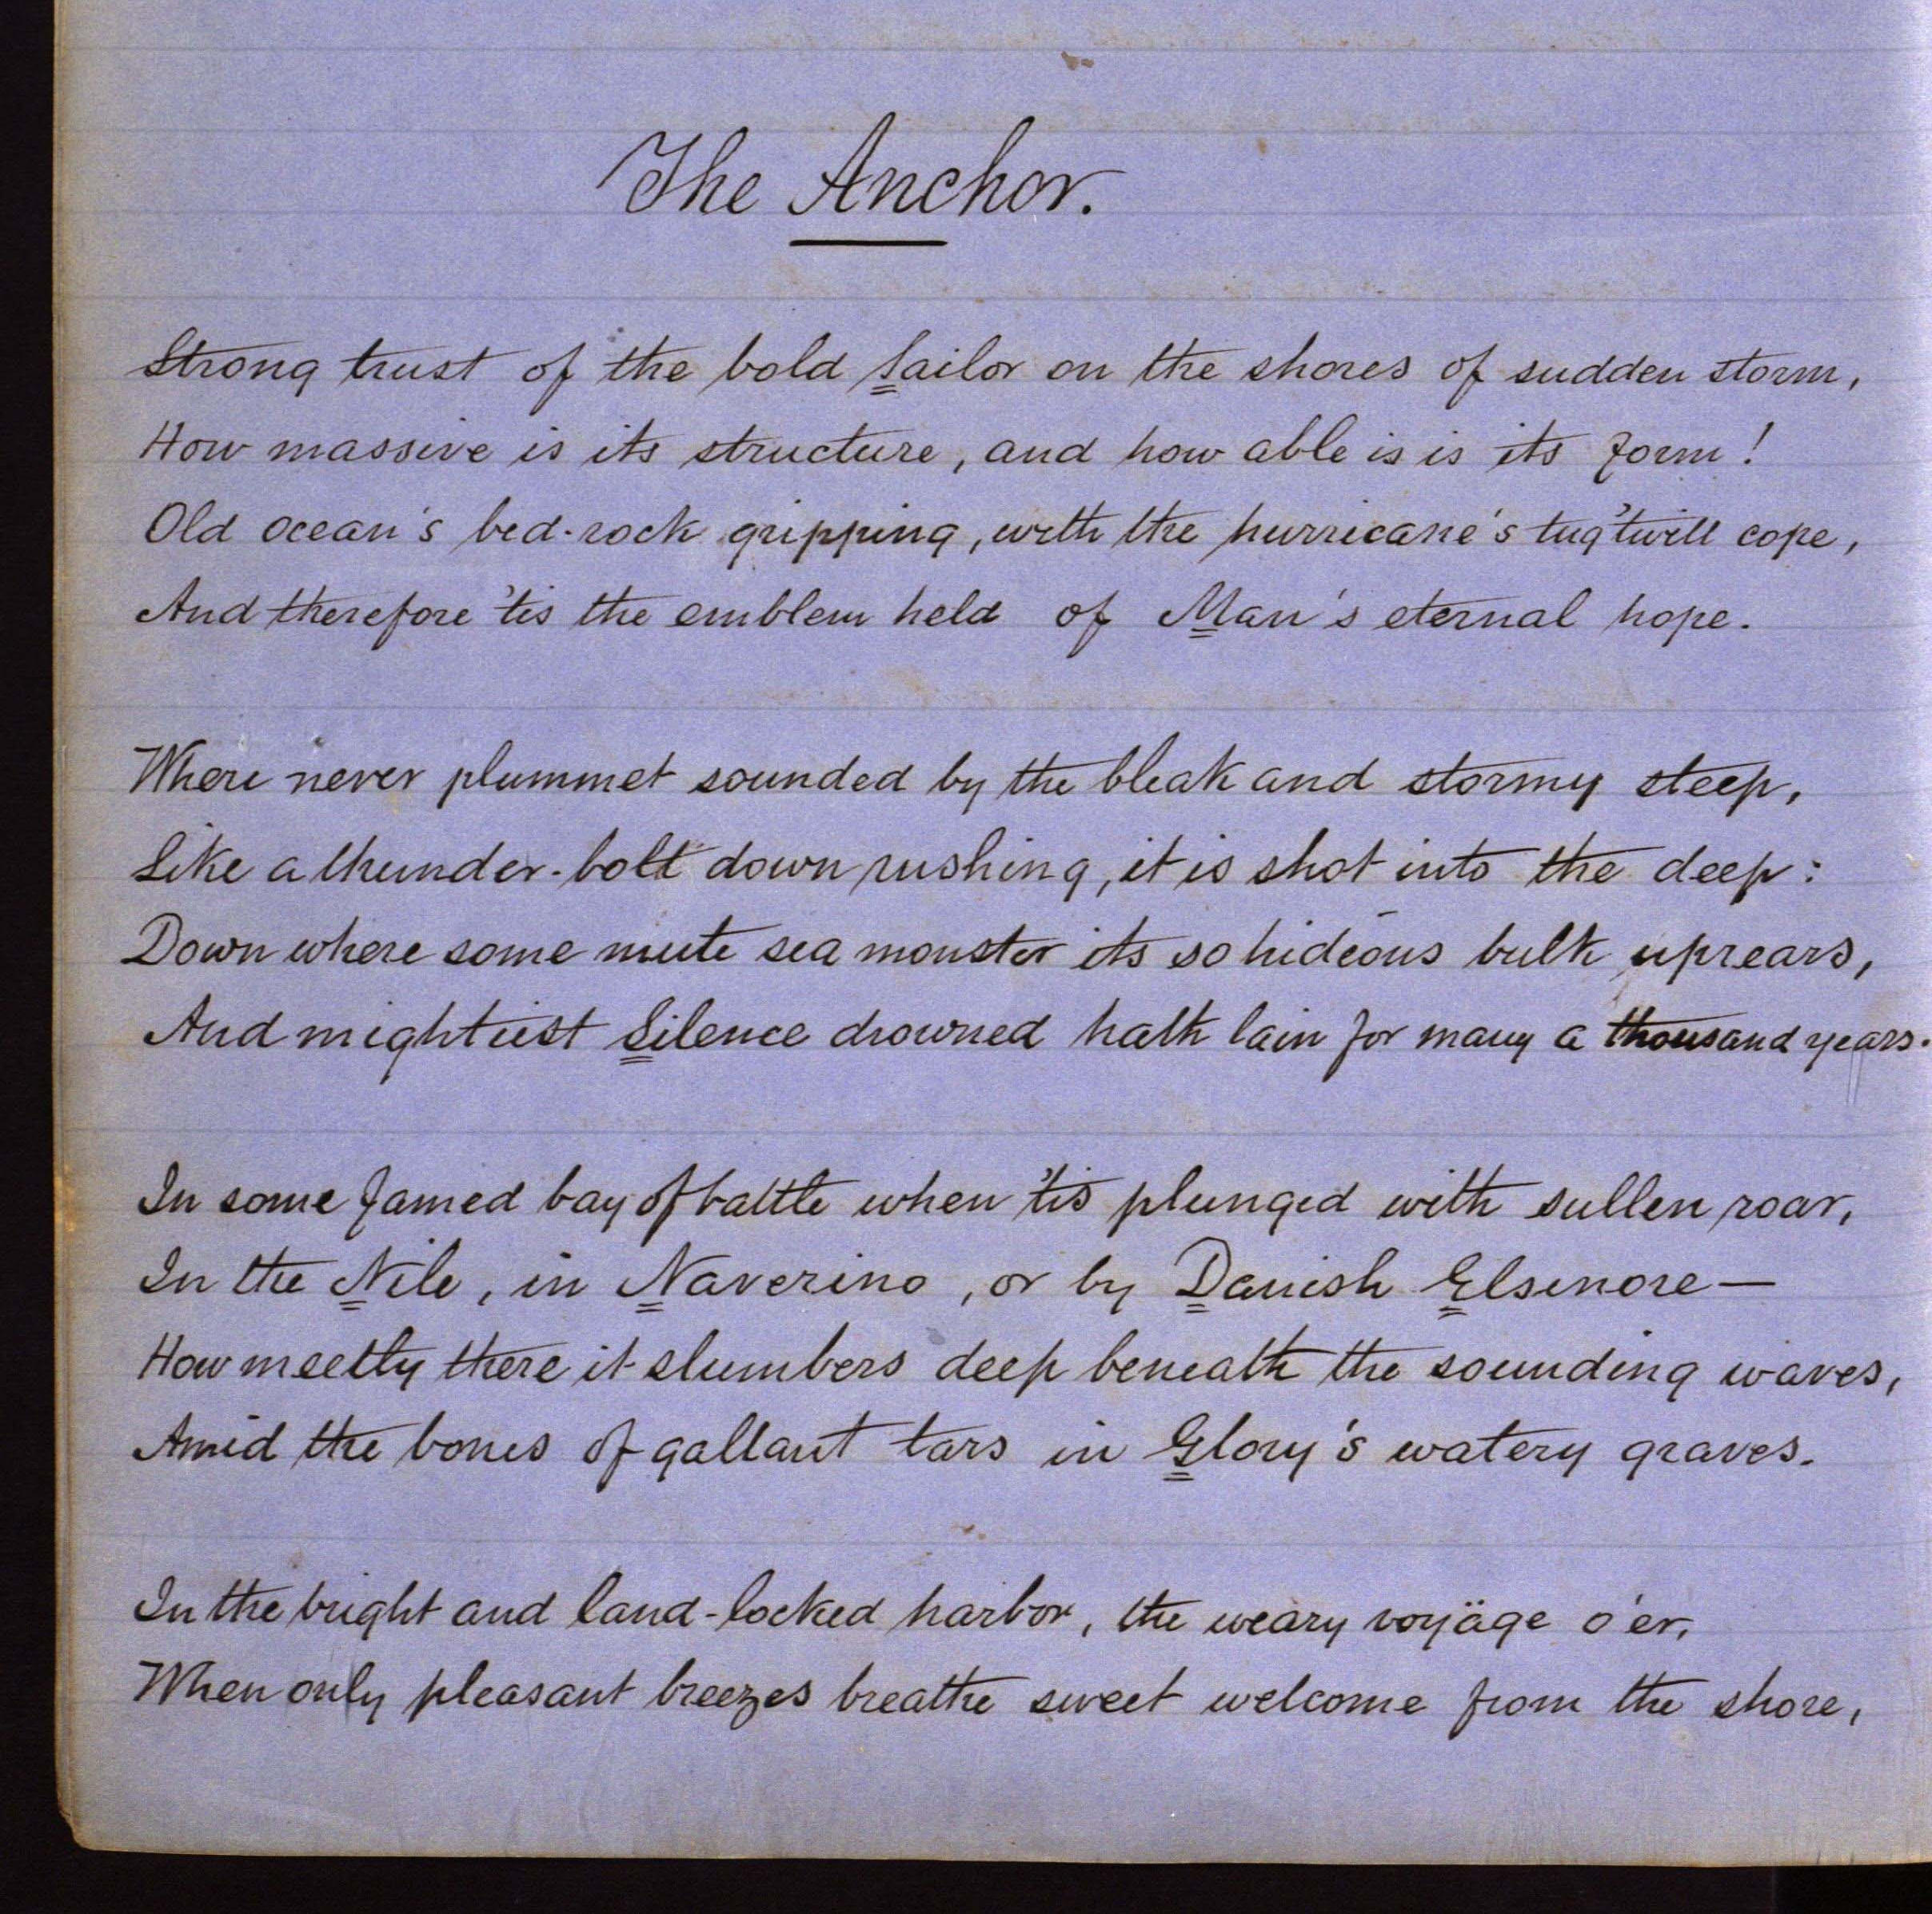 The Anchor.
Strong trust of the bold Sailor on the shores of sudden storm,
How massive is its structure, and how able is is its form!
Old ocean's bed-rock gripping, with the hurricane's tug 'twill cope,
And therefore 'tis the emblem held of Man's eternal hope.
Where never plummet sounded by the bleak and stormy steep,
Like a thunder-bolt down rushing, it is shot into the deep:
Down where some mute sea monster its so hideous bulk uprears,
And mightiest Silence drowned hath lain for many a thousand years.
In some famed bay of battle when 'tis plunged with sullen roar,
In the Nile, in Naverino, or by Danish Elsinore—
How meetly there it slumbers deep beneath the sounding waves,
Amid the bones of gallant tars in Glory's watery graves.
In the bright and land-locked harbor, the weary voyäge o'er,
When only pleasant breezes breathe sweet welcome from the shore,